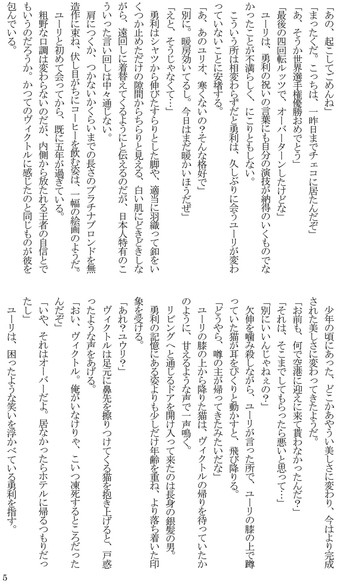 「あの、起こしてごめんね」
「まったくだ。こっちは、一昨日までチェコに居たんだぞ」
「あ、そうか世界選手権優勝おめでとう」
「最後の四回転ルッツで、オーバーターンしたけどな」
　ユーリは、勇利の祝いの言葉にも自分の演技が納得のいくものでな
かったことが不満らしく、にこりともしない。
　こういう所は相変わらずだと勇利は、久しぶりに会うユーリが変わ
っていないことに安堵する。
「あ、あのユリオ、寒くないの？そんな格好で」
「別に。暖房効いてるし。今日はまだ暖かいほうだぜ」
「えと、そうじゃなくて…」
　勇利はシャツから伸びたすらりとした脚や、適当に羽織って釦をい
くつか止めただけの隙間からちらりと見える、白い肌にどきどきしな
がら、遠回しに着替えてくるように伝えるのだが、日本人特有のこ
ういった言い回しは中々通じない。
　肩につくか、つかないかくらいまでの長さのプラチナブロンドを無
造作に束ね、伏し目がちにコーヒーを飲む姿は、一幅の絵画のようだ。
　ユーリと初めて会ってから、既に五年が過ぎている。
　粗野な口調は変わらないのだが、内側から放たれる王者の自信とで
もいうのだろうか。かつてのヴィクトルに感じたのと同じものが彼を
包んでいる。
　少年の頃にあった、どこかあやうい美しさに変わり、今はより完成
された美しさに変わってきたようだ。
「お前も、何で空港に迎えに来て貰わなかったんだ？」
「それは、そこまでしてもらったら悪いと思って…」
「別にいいんじゃねぇの？」
　欠伸を噛み殺しながら、ユーリが言った所で、ユーリの膝の上で蹲
っていた猫が耳をぴくりと動かすと、飛び降りる。
「どうやら、噂の主が帰ってきたみたいだな」
　ユーリの膝の上から降りた猫は、ヴィクトルの帰りを待っていたか
のように、甘えるような声で一声鳴く。
　リビングへと通じるドアを開け入って来たのは長身の銀髪の男。
　勇利の記憶にある姿よりも少しだけ年齢を重ね、より落ち着いた印
象を受ける。
「あれ？ユウリ？」
　ヴィクトルは足元に鼻先を擦りつけてくる猫を抱き上げると、戸惑
ったような声をあげる。
「おい、ヴィクトル。俺がいなけりゃ、こいつ凍死するところだった
んだぞ」
「いや、それはオーバーだよ。居なかったらホテルに帰るつもりだっ
たし」
　ユーリは、困ったような笑いを浮かべている勇利を指す。
5